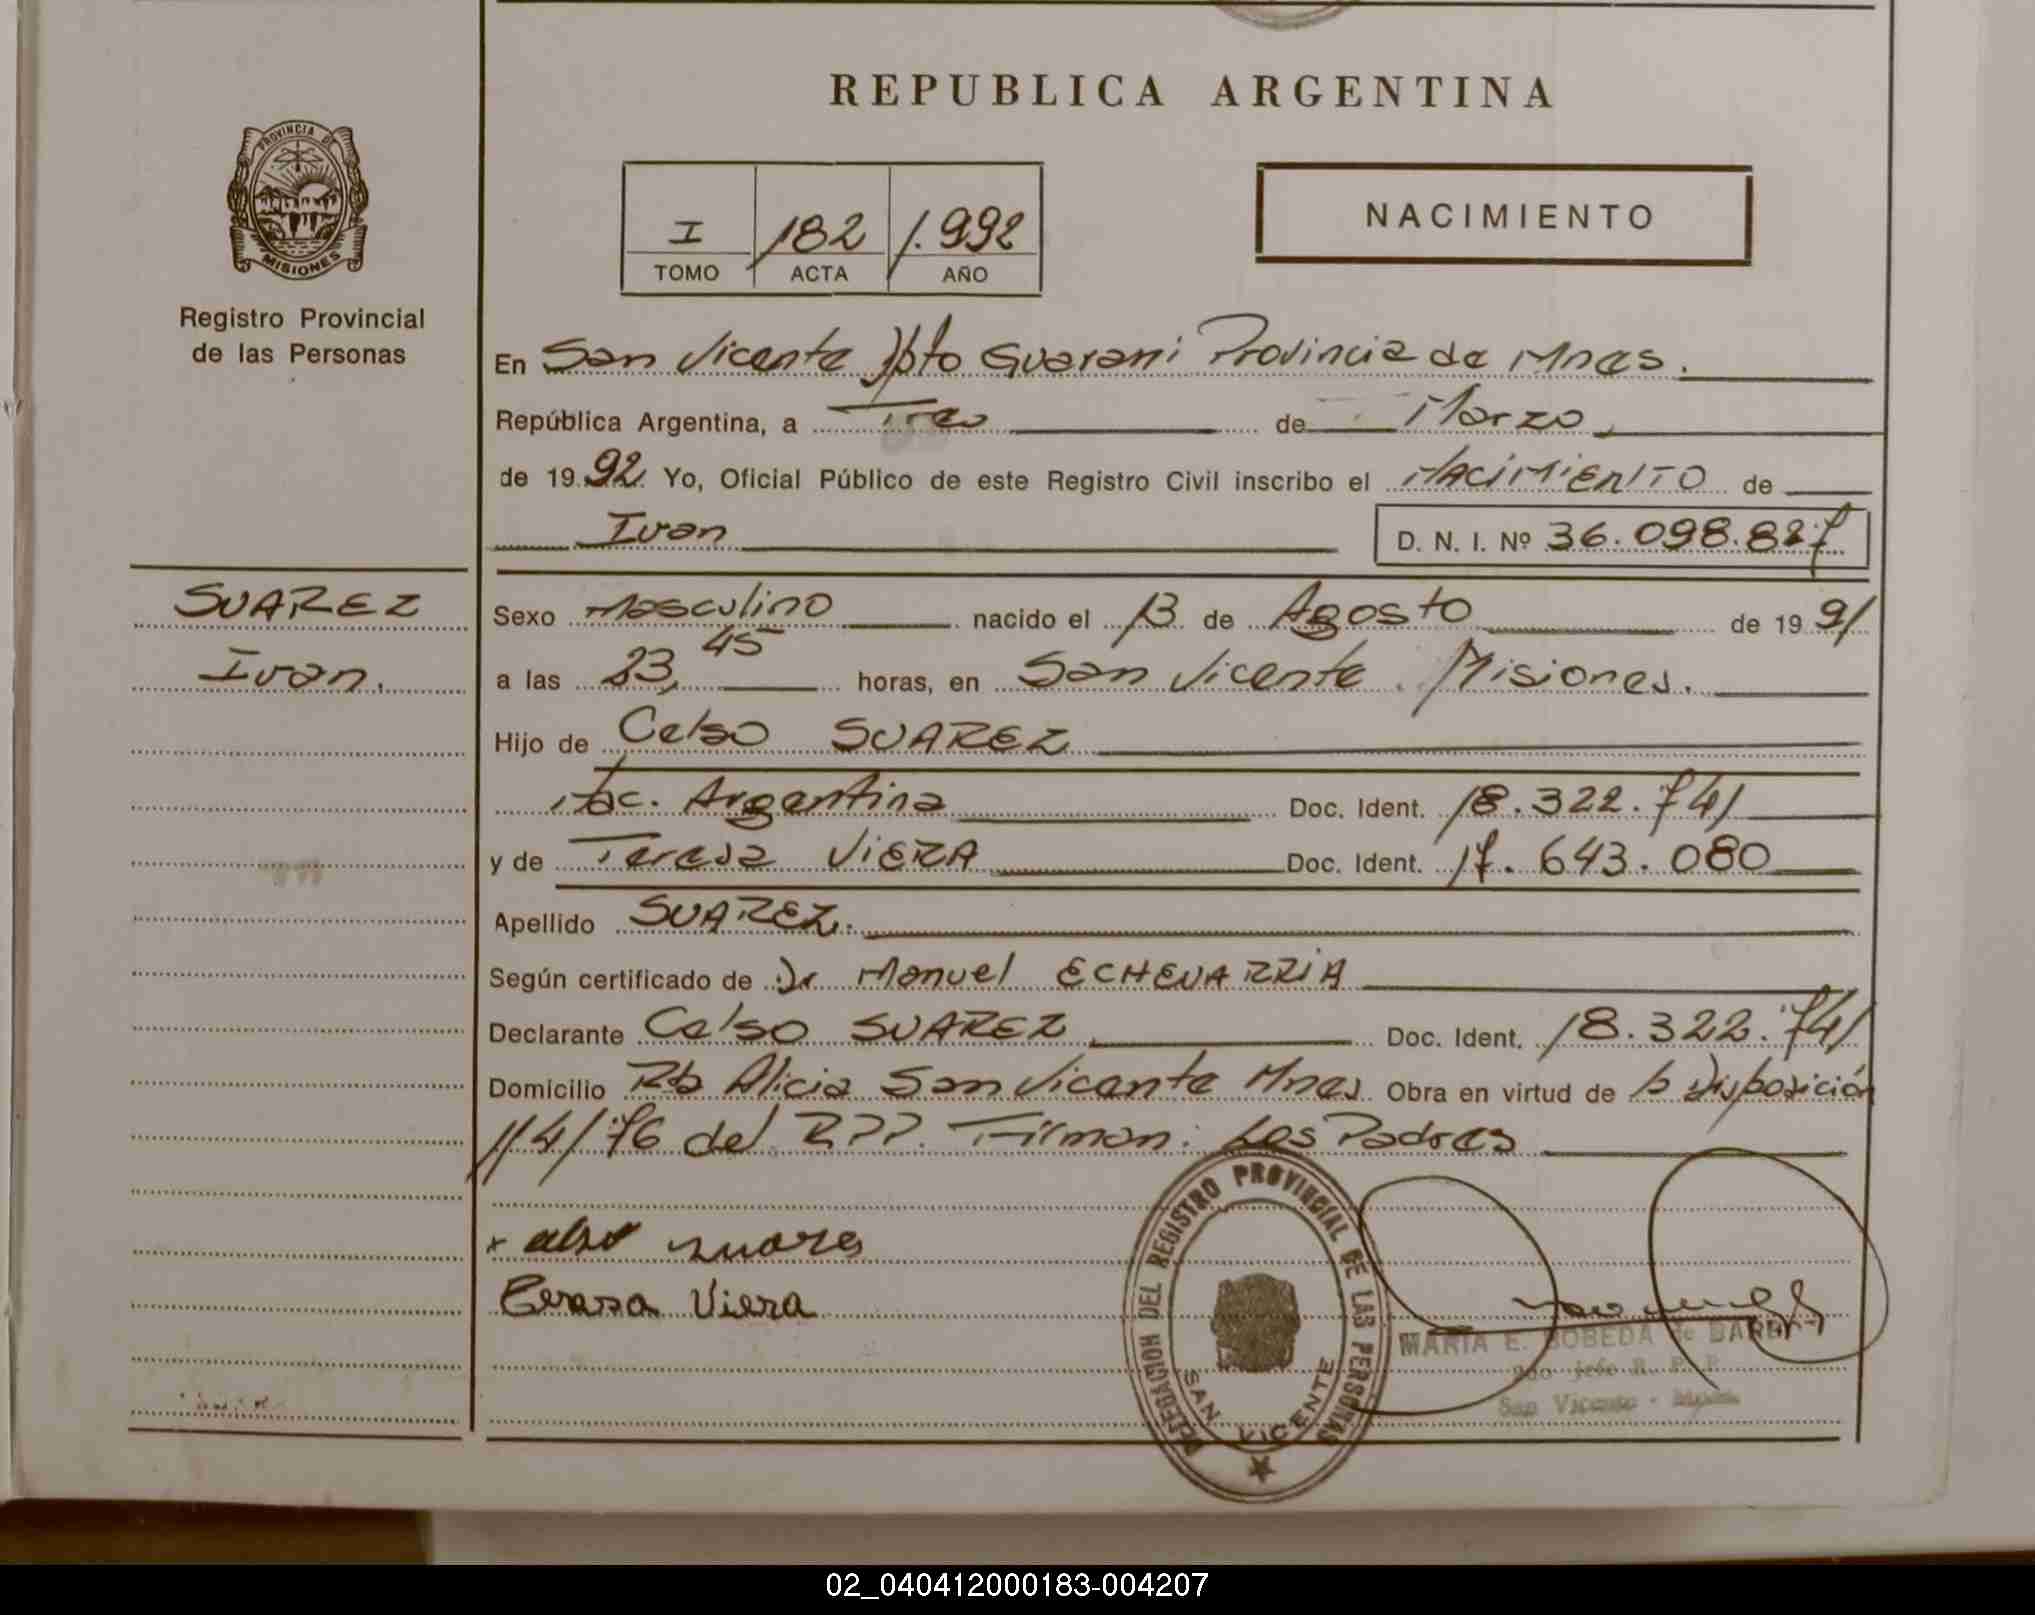 REPUBLICA ARGENTINA
PROVINCIA DE
MISIONES
Registro Provincial
de las Personas
I 182 1.992
TOMO ACTA AÑO
NACIMIENTO
En San Vicente Dpto Guarani Provincia de Mnes.
República Argentina, a Tres de Marzo
de 19 92 Yo, Oficial Público de este Registro Civil inscribo el NACIMIENTO de
Ivan D. N. I. Nº 36.098.827
SUAREZ
Ivan.
Sexo Masculino nacido el 13 de Agosto de 19 91
a las 23,45 horas, en San Vicente. Misiones.
Hijo de Celso SUAREZ
Nac. Argentina Doc. Ident. 18.322.741
y de Teresa VIERA Doc. Ident. 17.643.080
Apellido SUAREZ.
Según certificado de Dr Manuel ECHEVARRIA
Declarante Celso SUAREZ Doc. Ident. 18.322.741
Domicilio Rb Alicia San Vicente Mnes Obra en virtud de la Disposición
1/4/76 del RPP. Firman: Los Padres
x celso suares
Teresa Viera
DELEGACION DEL REGISTRO PROVINCIAL DE LAS PERSONAS
SAN VICENTE
MARIA E. BOBEDA de
2do jefe R. P. P.
San Vicente - Mnes.
02_040412000183-004207